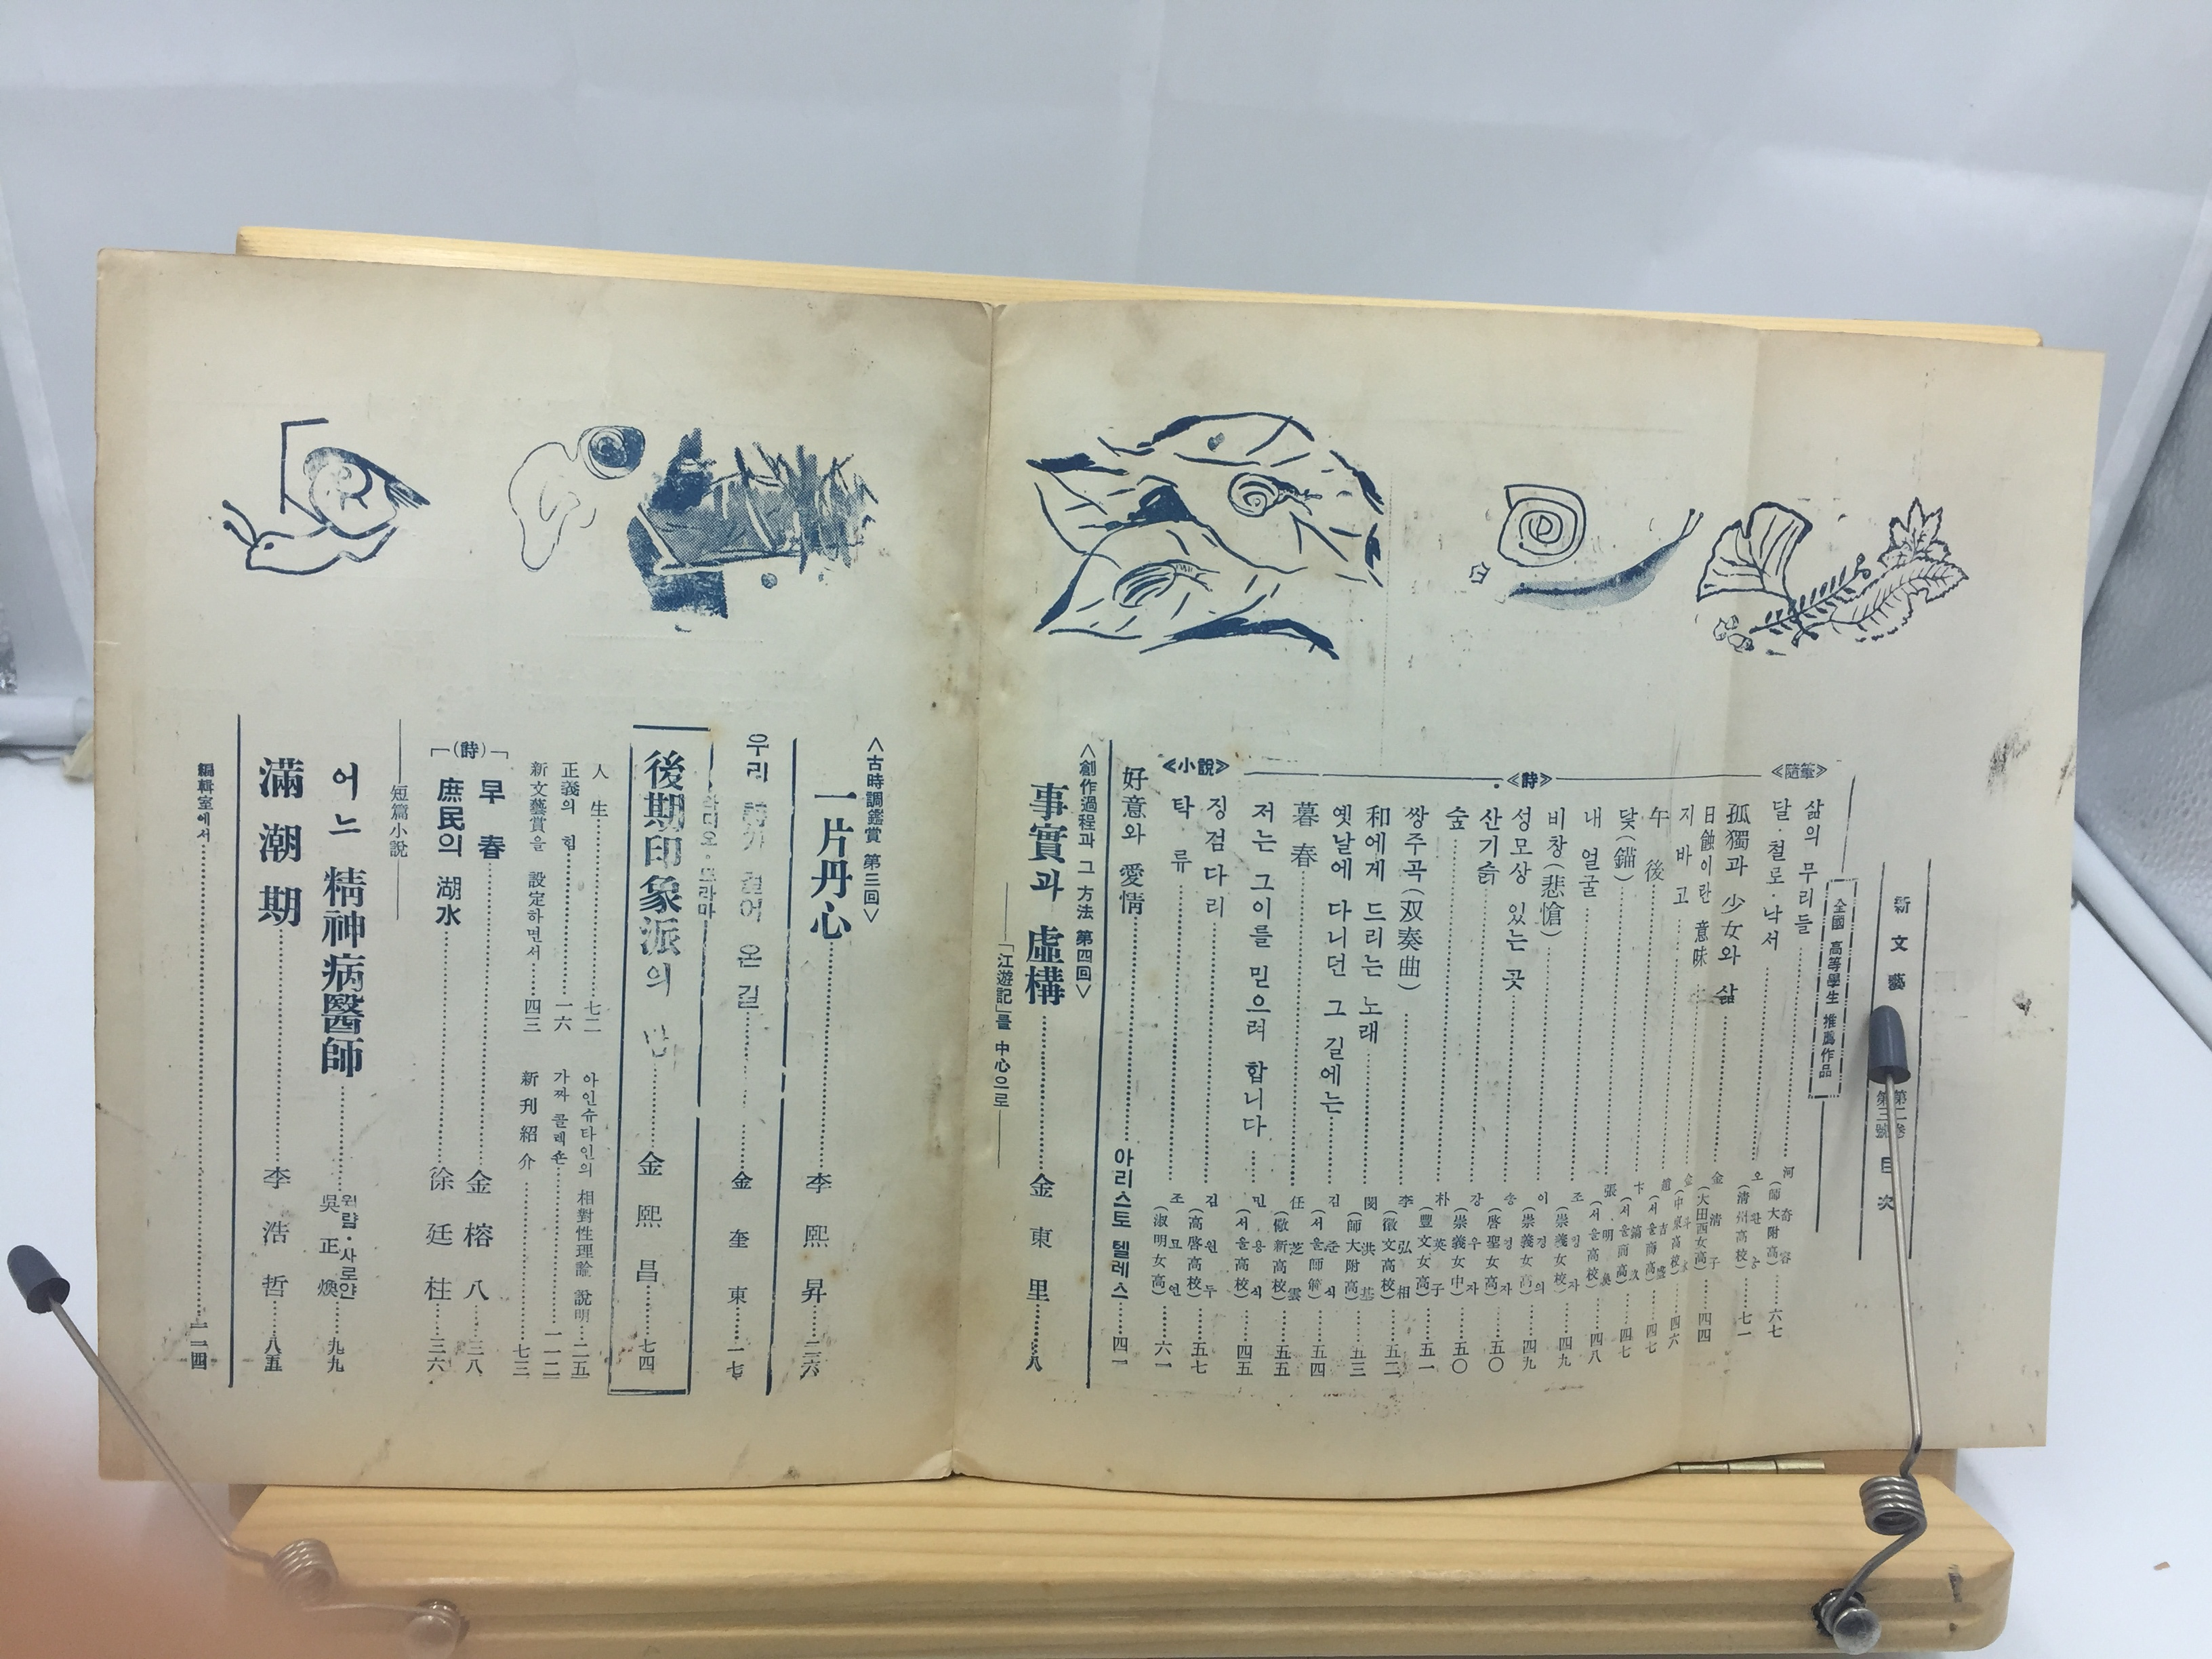 新文藝 第二卷 第三號 目次
全國 高等學生 推薦作品
《隨筆》
삶의 무리들 河奇容 (師大附高) 六七
달·철로·낙서 (淸州高校) 七一
孤獨과 少女와 삶 金淸子 (大田西女高) 四四
《詩》
日蝕이란 意味 四六
지바고 四七
午後 (서울商高) 四七
닻(錨) (서울高校) 四八
내 얼굴 (崇義女校) 四九
비창(悲愴) 이경의 (崇義女高) 四九
성모상 있는 곳 송영자 (啓聖女高) 五〇
산기슭 강우자 (崇義女中) 五〇
숲 朴英子 (豐文女高) 五一
쌍주곡(双奏曲) 李弘相 (徽文高校) 五二
和에게 드리는 노래 閔洪基 (師大附高) 五三
옛날에 다니던 그 길에는 김준식 (서울師範) 五四
暮春 任芝雲 (儆新高校) 五五
저는 그이를 믿으려 합니다 민용식 (서울高校) 四五
《小說》
징검다리 김원두 (高啓高校) 五七
탁류 조묘연 (淑明女高) 六一
好意와 愛情 아리스토텔레스 四一
<創作過程과 그 方法 第四回>
事實과 虛構 金東里 八
「江遊記」를 中心으로
<古時調鑑賞 第三回>
一片丹心 李熙昇 三六
우리 詩歌 걸어 온 길 金奎東 一七
라디오·드라마
後期印象派의 金熙昌 七四
人生 七二
正義의 힘 一六
新文藝賞을 設定하면서 四三
아인슈타인의 相對性理論 說明 二五
가짜 콜렉숀 一一二
新刊紹介 七三
(詩)
早春 金榕八 三八
庶民의 湖水 徐廷柱 三六
短篇小說
어느 精神病醫師 윌럄·사로얀 吳正煥 九九
滿潮期 李浩哲 八五
編輯室에서 一二四